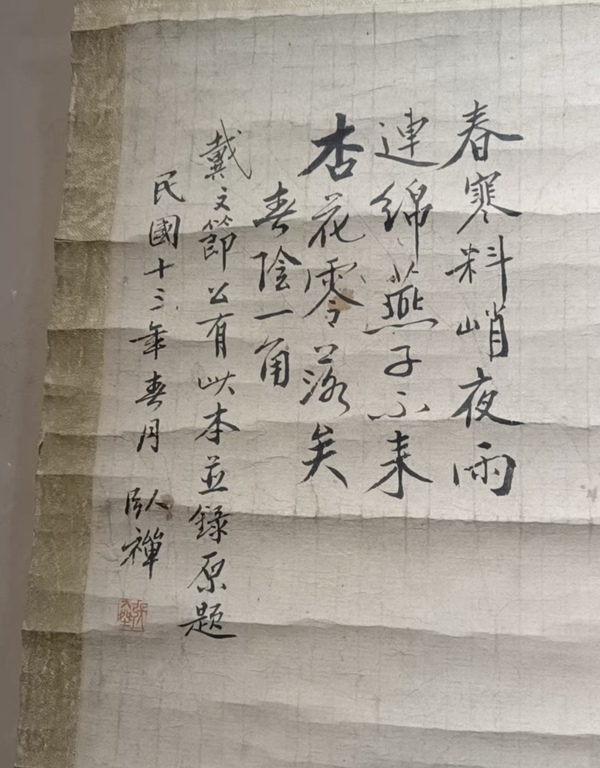 春寒料峭夜雨
連綿燕子不来
杏花零落矣
春陰一角
戴文節公有此本並錄原題
民國十三年春月
臥禪